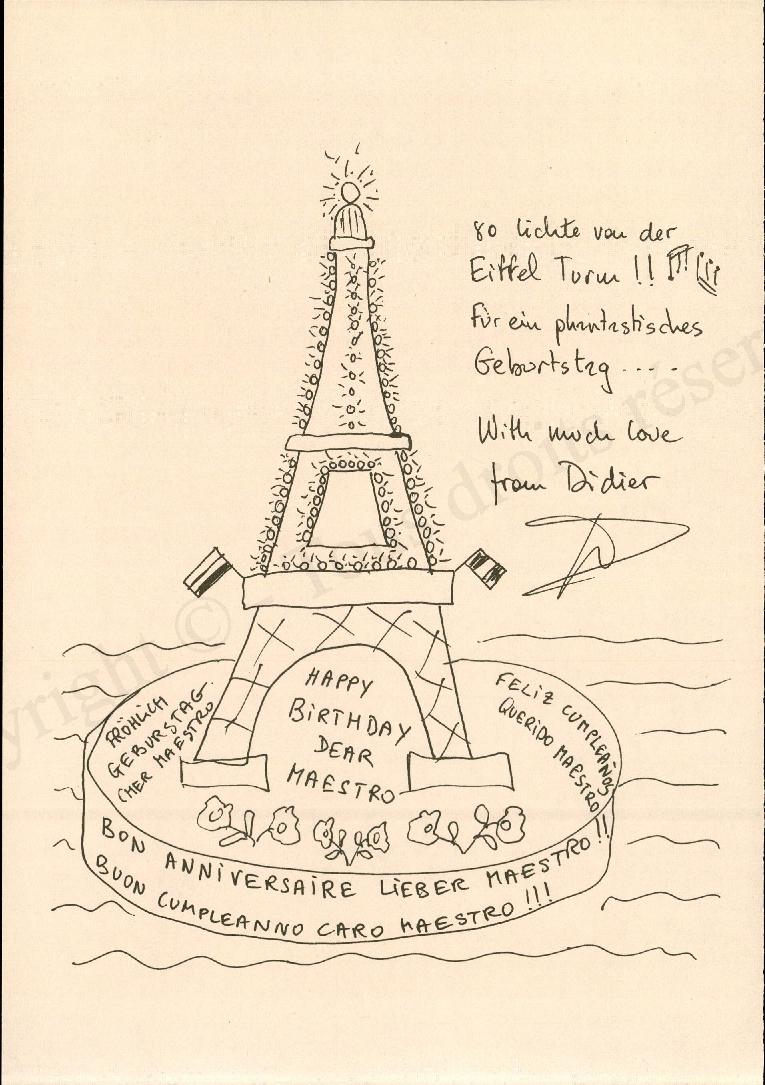 80 lichte von der
Eiffel Turm !!
Für ein phantastisches
Geburtstag ....
With much love
from Didier
HAPPY
BIRTHDAY
DEAR
MAESTRO
FRÖHLICH
GEBURSTAG
CHER MAESTRO
FELIZ CUMPLEAÑOS
QUERIDO MAESTRO
BON ANNIVERSAIRE LIEBER MAESTRO !!
BUON CUMPLEANNO CARO MAESTRO !!!
yright © - Tous droits réser